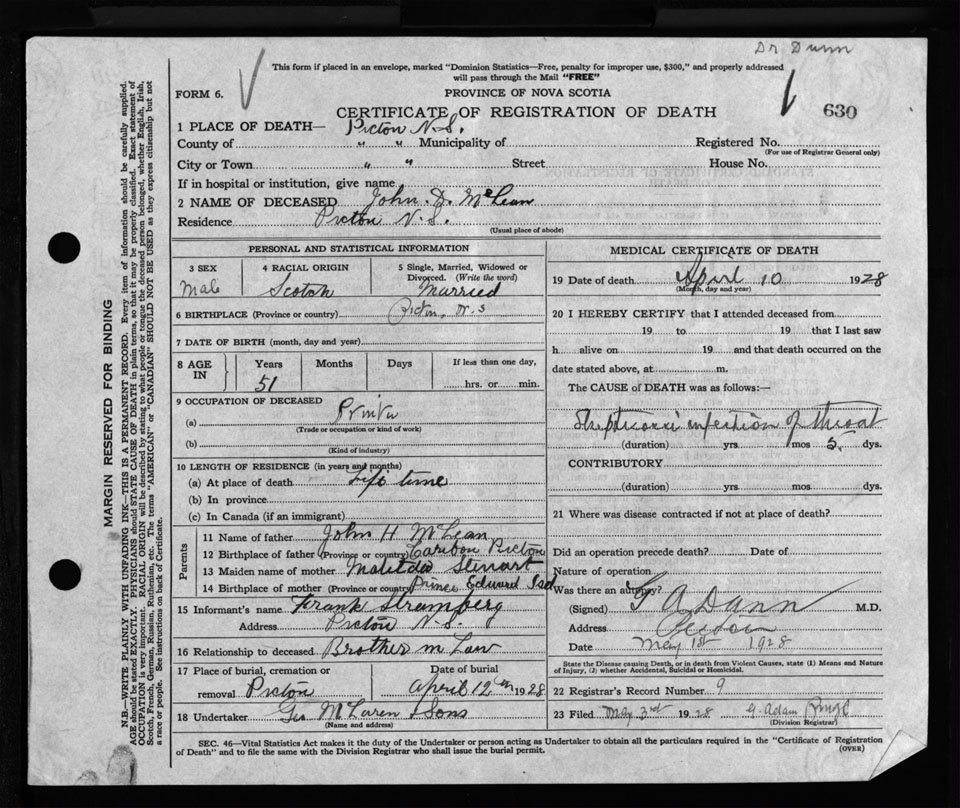 Dr Dunn
This form if placed in an envelope, marked "Dominion Statistics—Free, penalty for improper use, $300," and properly addressed
will pass through the Mail "FREE"
FORM 6.
PROVINCE OF NOVA SCOTIA
630
CERTIFICATE OF REGISTRATION OF DEATH
1 PLACE OF DEATH— Picton N.S.
County of " " Municipality of Registered No.
(For use of Registrar General only)
City or Town " " Street House No.
If in hospital or institution, give name
2 NAME OF DECEASED John D. McLean
Residence Picton N.S.
(Usual place of abode)
PERSONAL AND STATISTICAL INFORMATION
3 SEX 4 RACIAL ORIGIN 5 Single, Married, Widowed or
Divorced. (Write the word)
Male Scotch Married
6 BIRTHPLACE (Province or country) Picton, N.S
7 DATE OF BIRTH (month, day and year)
8 AGE IN Years Months Days If less than one day,
51 hrs. or min.
9 OCCUPATION OF DECEASED
(a) Printer
(Trade or occupation or kind of work)
(b)
(Kind of industry)
10 LENGTH OF RESIDENCE (in years and months)
(a) At place of death Life time
(b) In province
(c) In Canada (if an immigrant)
Parents
11 Name of father John H McLean
12 Birthplace of father (Province or country) Caribou Picton
13 Maiden name of mother Matilda Stewart
14 Birthplace of mother (Province or country) Prince Edward Isd
15 Informant's name Frank Stramberg
Address Picton N.S.
16 Relationship to deceased Brother in Law
17 Place of burial, cremation or Date of burial
removal Picton April 12th 1928
18 Undertaker Geo McLaren & Sons
(Name and address)
MEDICAL CERTIFICATE OF DEATH
19 Date of death April 10 1928
(Month, day and year)
20 I HEREBY CERTIFY that I attended deceased from
19 to 19 that I last saw
h alive on 19 and that death occurred on the
date stated above, at m.
The CAUSE of DEATH was as follows:—
infection of throat
(duration) yrs. mos 5 dys.
CONTRIBUTORY
(duration) yrs. mos. dys.
21 Where was disease contracted if not at place of death?
Did an operation precede death? Date of
Nature of operation
Was there an autopsy?
(Signed) G A Dunn M.D.
Address Picton
Date May 1st 1928
State the Disease causing Death, or in death from Violent Causes, state (1) Means and Nature
of Injury, (2) whether Accidental, Suicidal or Homicidal.
22 Registrar's Record Number 9
23 Filed May 3rd 1928 G. Adam
(Division Registrar)
SEC. 46—Vital Statistics Act makes it the duty of the Undertaker or person acting as Undertaker to obtain all the particulars required in the "Certificate of Registration
of Death" and to file the same with the Division Registrar who shall issue the burial permit. (OVER)
MARGIN RESERVED FOR BINDING
N.B.—WRITE PLAINLY WITH UNFADING INK—THIS IS A PERMANENT RECORD. Every item of information should be carefully supplied.
AGE should be stated EXACTLY. PHYSICIANS should STATE CAUSE OF DEATH in plain terms, so that it may be properly classified. Exact statement of
OCCUPATION is very important. RACIAL ORIGIN will be described by stating to what people or tongue the deceased person belonged, whether English, Irish,
Scotch, French, German, Russian, Ruthenian, etc. The terms "AMERICAN" or "CANADIAN" SHOULD NOT BE USED as they express citizenship but not
a race or people. See instructions on back of Certificate.